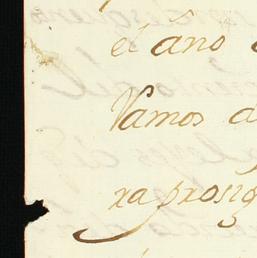 el año
Vamos a
ra prosig